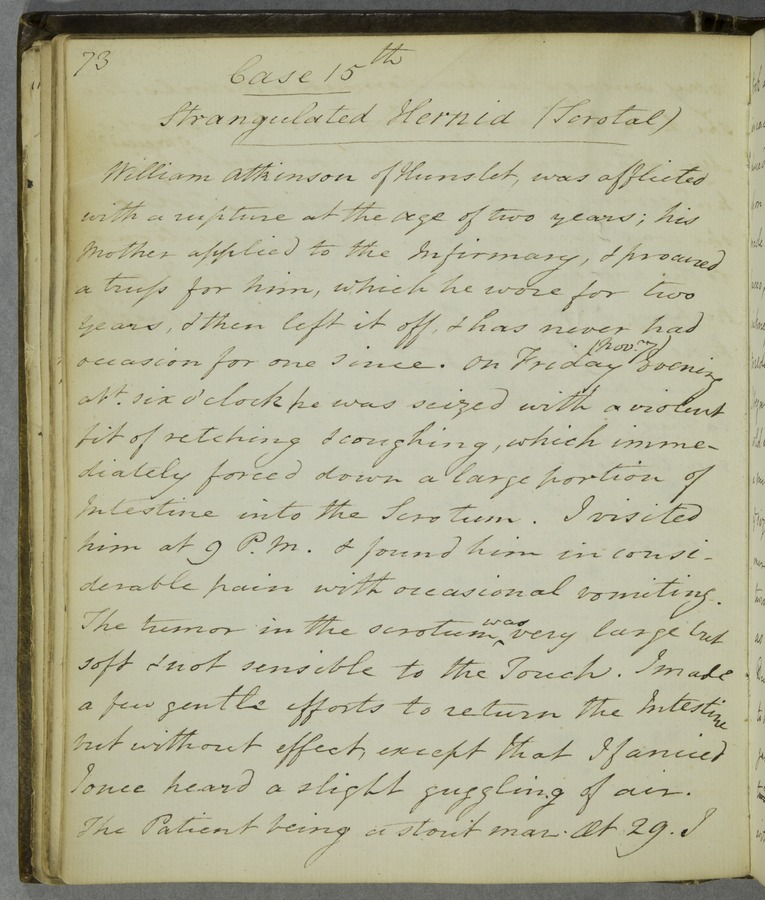 73
Case 15th
Strangulated Hernia (Scrotal)
William Atkinson of Hunslet, was afflicted
with a rupture at the age of two years; his
Mother applied to the Infirmary, & procured
a truss for him, which he wore for two
years, & then left it off, & has never had
occasion for one since. On Friday (Nov. 7) Evening
abt. six o'clock he was seized with a violent
fit of retching & coughing, which imme-
diately forced down a large portion of
Intestine into the Scrotum. I visited
him at 9 P.M. & found him in consi-
derable pain with occasional vomiting.
The tumor in the scrotum was very large but
soft & not sensible to the Touch. I made
a few gentle efforts to return the Intestine
but without effect, except that I fancied
I once heard a slight guggling of air.
The Patient being a stout man. Æt 29. I